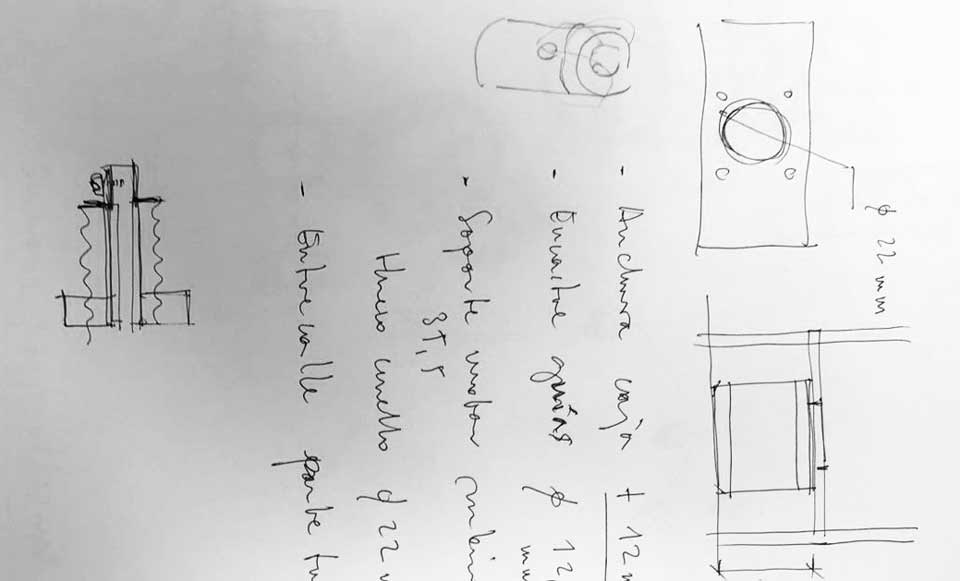 ø 22 mm
- Anchura caja + 12
- Encaitre guías ø 12,
mm
- Soporte motor
37,5
Hueco cuello ø 22
- Entrecalle parte